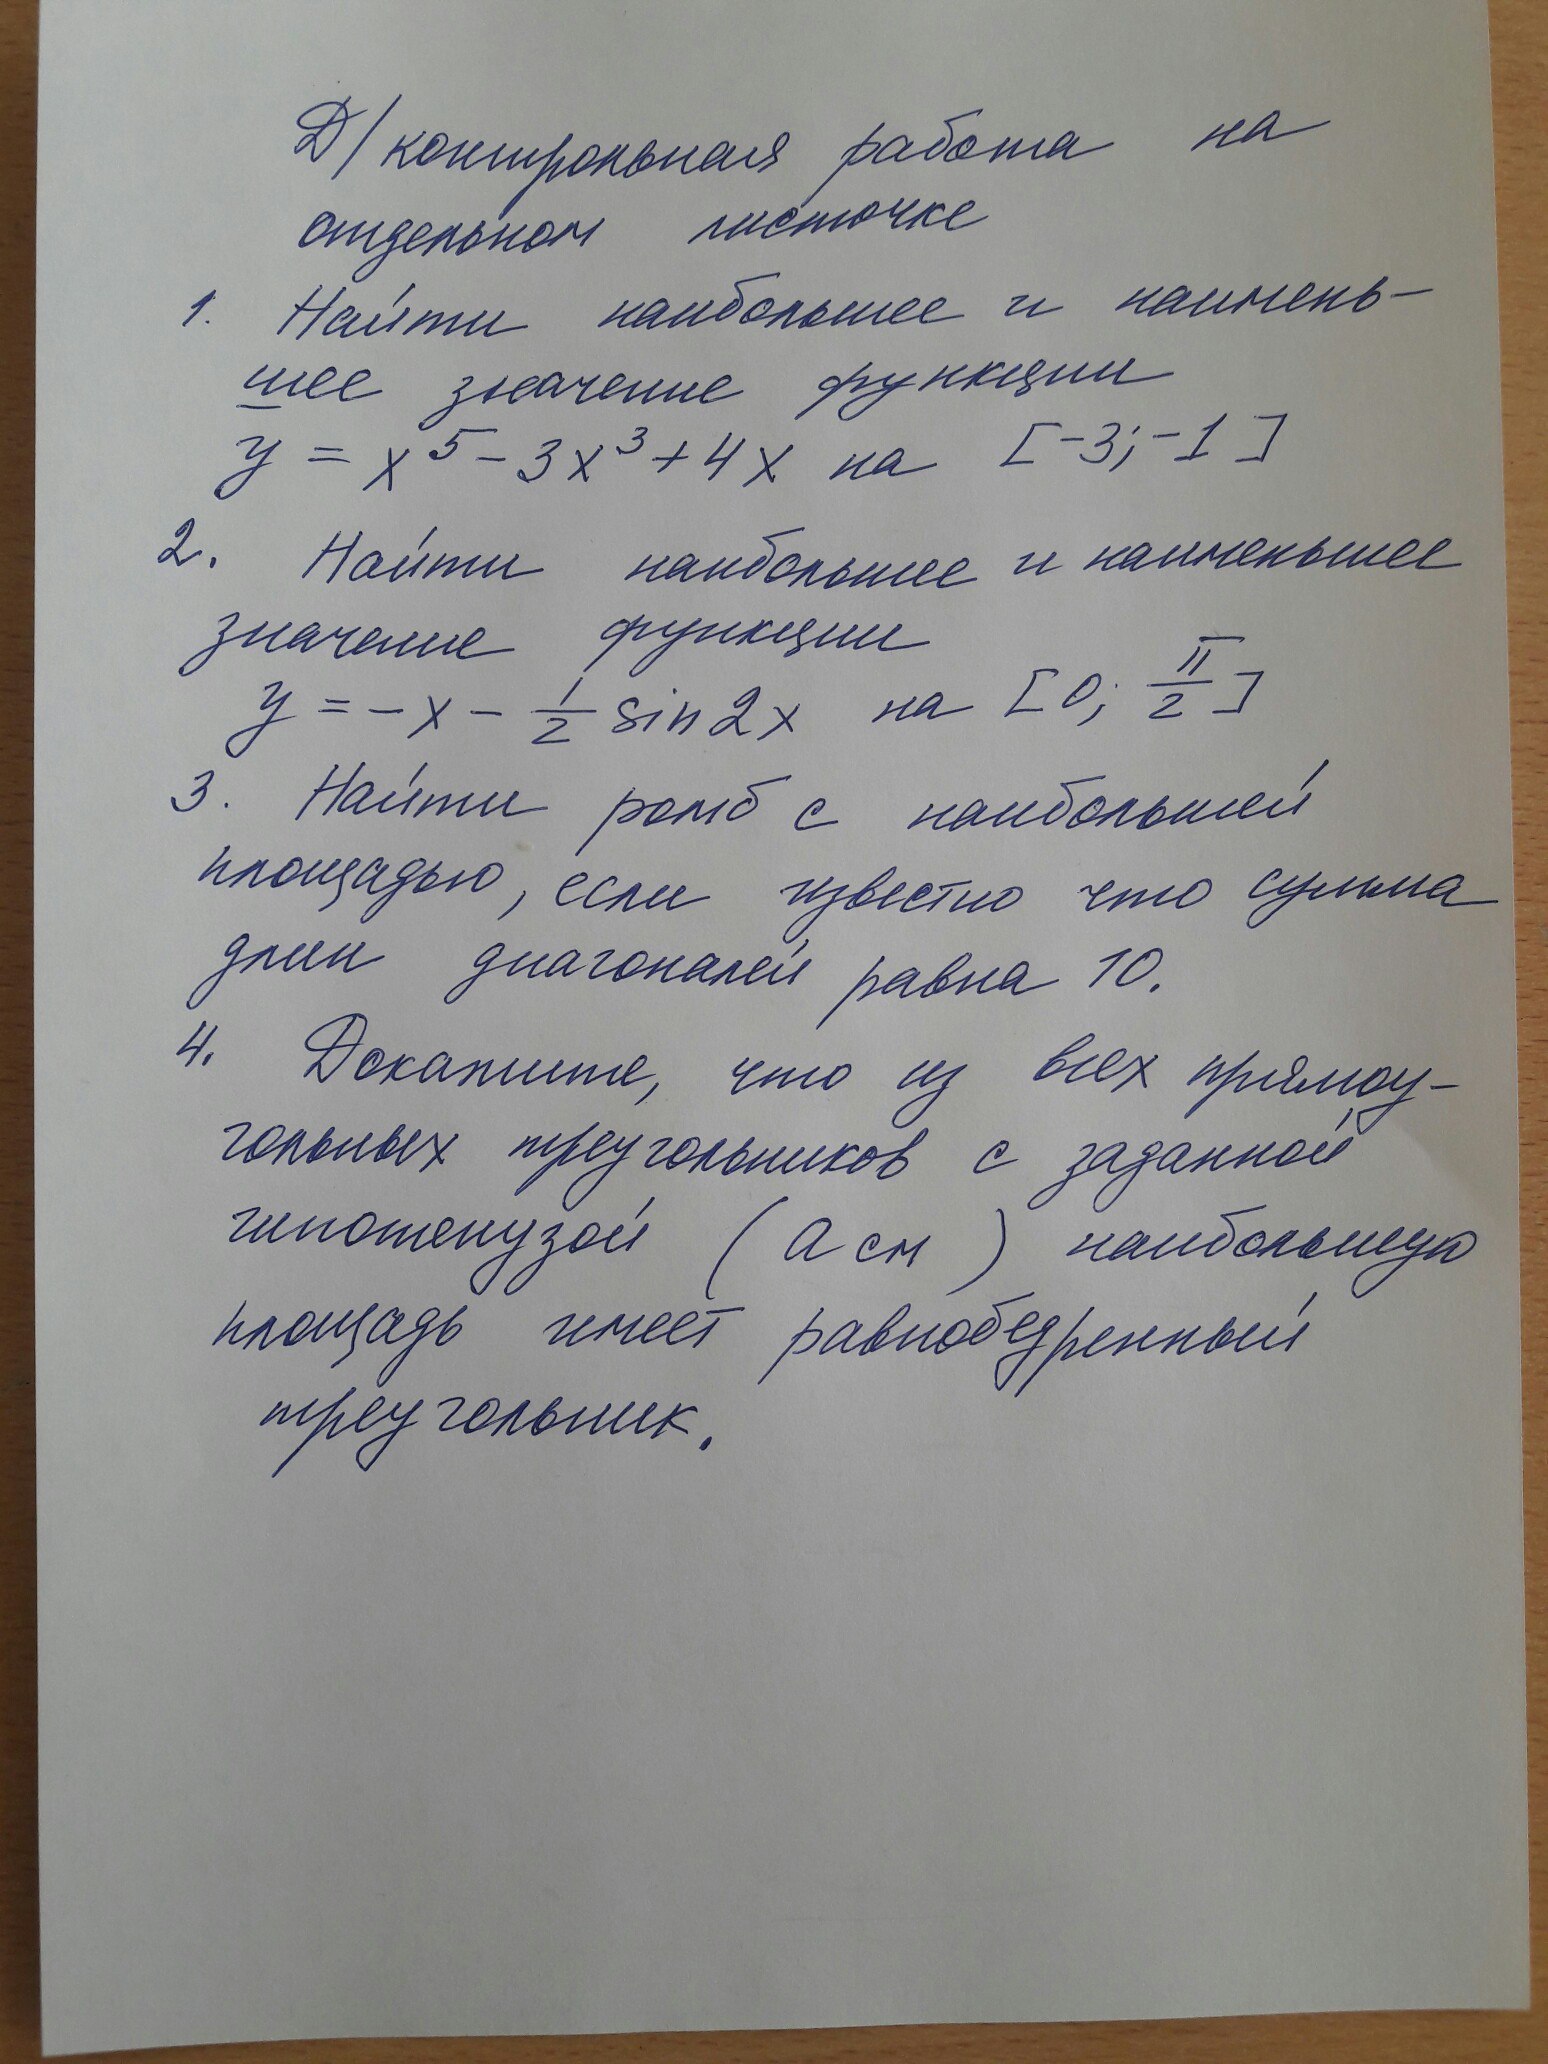 Д/контрольная работа на
отдельном листочке
1. Найти наибольшее и наимень-
шее значение функции
y = x⁵ - 3x³ + 4x на [-3; -1]
2. Найти наибольшее и наименьшее
значение функции
y = -x - 1/2 sin 2x на [0; π/2]
3. Найти ромб с наибольшей
площадью, если известно что сумма
длин диагоналей равна 10.
4. Докажите, что из всех прямоу-
гольных треугольников с заданной
гипотенузой (a см) наибольшую
площадь имеет равнобедренный
треугольник.